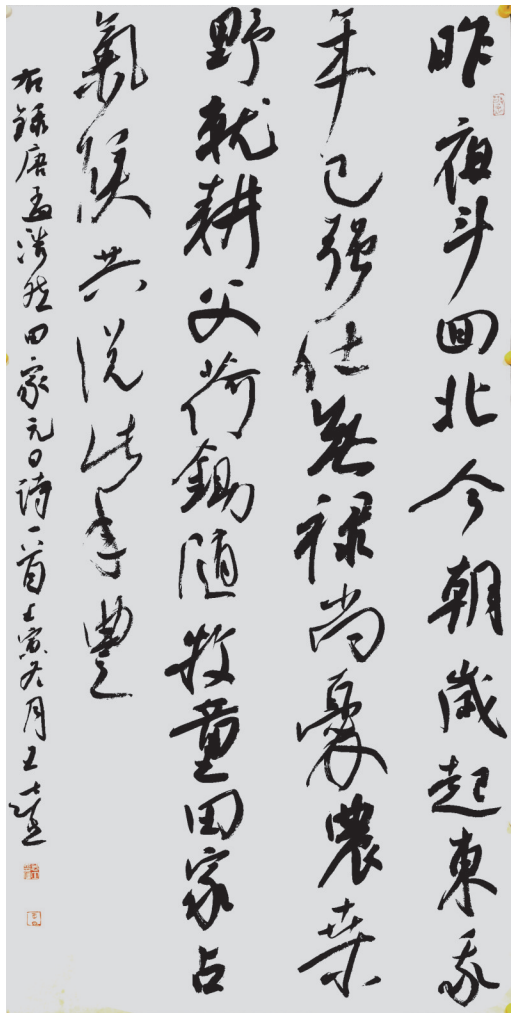 昨夜斗回北今朝歲起東我
年已强仕無禄尚憂農桒
野就耕父荷鋤随牧童田家占
氣候共説此年豐
右録唐孟浩然田家元日詩一首壬寅冬月王